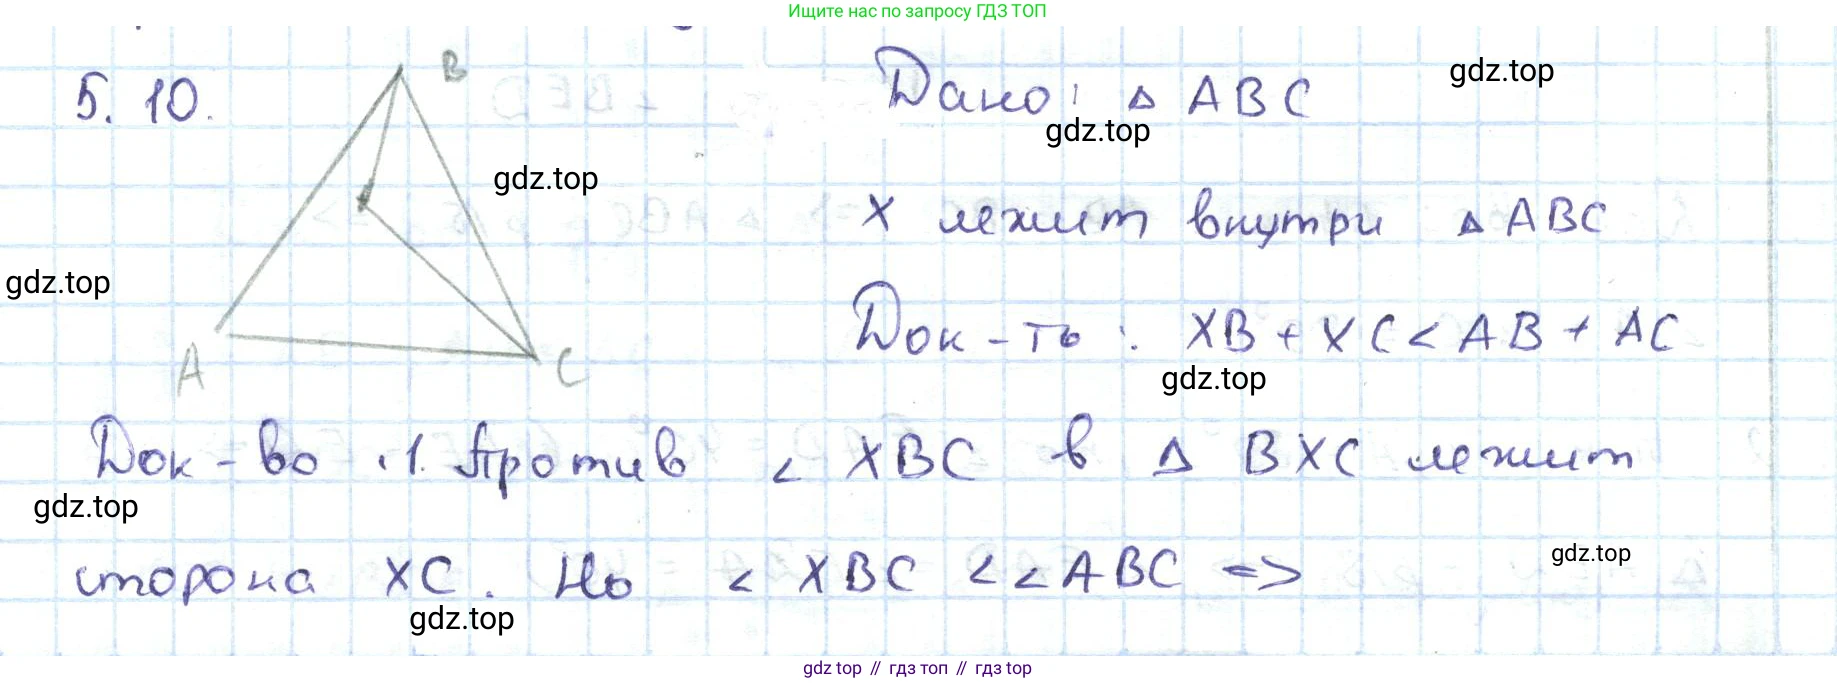 Ищите нас по запросу ГДЗ ТОП
5.10.
B
Дано: △ ABC
gdz.top
gdz.top
gdz.top
X лежит внутри △ ABC
gdz.top
Док-ть: XB + XC < AB + AC
A
C
gdz.top
Док-во 1. Против ∠ XBC в △ BXC лежит
gdz.top
сторона XC. Но ∠ XBC < ∠ABC =>
gdz.top
gdz.top
gdz top // гдз топ // гдз top